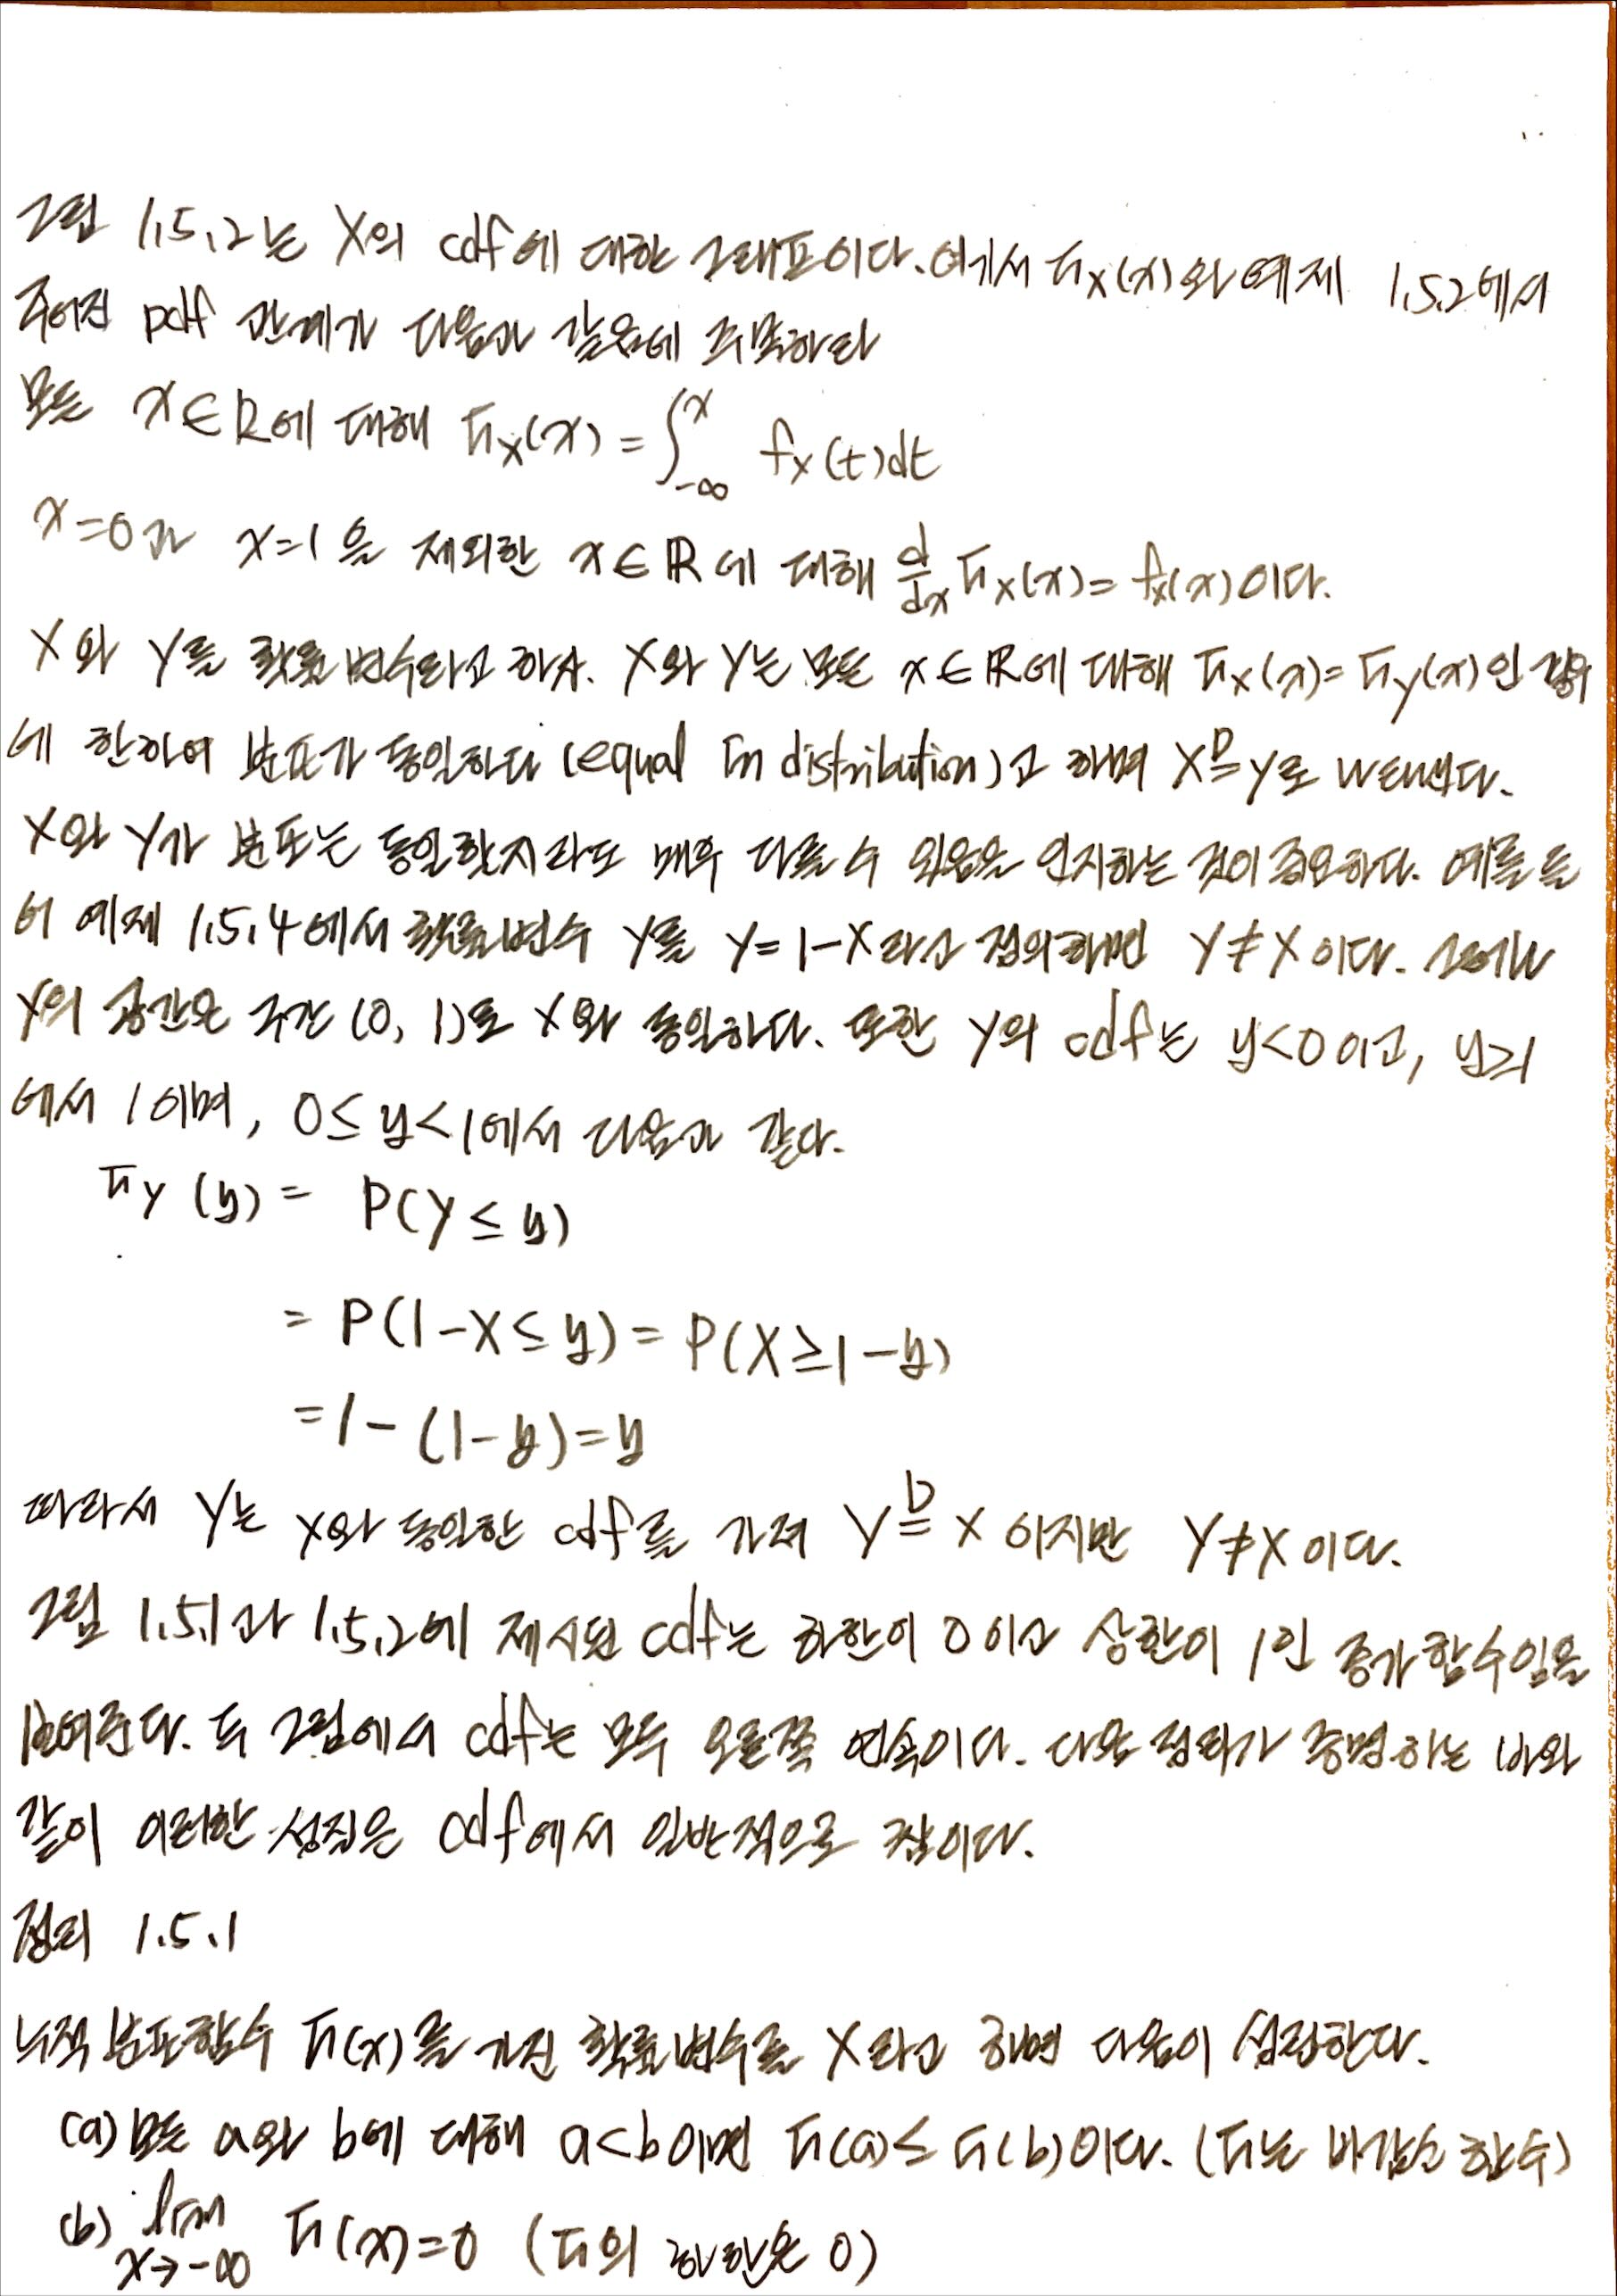 그림 1.5.2는 X의 cdf에 대한 그래프이다. 여기서 F_X(x)와 예제 1.5.2에서
주어진 pdf 관계가 다음과 같음에 주목하라
모든 x∈R에 대해 F_X(x) = ∫_{-∞}^{x} f_X(t)dt
x=0과 x=1을 제외한 x∈ℝ에 대해 d/dx F_X(x) = f_X(x)이다.
X와 Y를 확률변수라고 하자. X와 Y는 모든 x∈ℝ에 대해 F_X(x) = F_Y(x)인 경우
에 한하여 분포가 동일하다 (equal in distribution)고 하며 X D= Y로
X와 Y가 분포는 동일할지라도 매우 다를 수 있음을 인지하는 것이 중요하다. 예를 들
어 예제 1.5.4에서 확률변수 Y를 Y = 1-X라고 정의하면 Y≠X이다. 그러나
Y의 공간은 구간 (0, 1)로 X와 동일하다. 또한 Y의 cdf는 y<0이고, y≥1
에서 1이며, 0≤y<1에서 다음과 같다.
F_Y(y) = P(Y≤y)
= P(1-X≤y) = P(X≥1-y)
= 1-(1-y) = y
따라서 Y는 X와 동일한 cdf를 가져 Y D= X이지만 Y≠X이다.
그림 1.5.1과 1.5.2에 제시된 cdf는 하한이 0이고 상한이 1인 증가함수임을
보여준다. 두 그림에서 cdf는 모두 오른쪽 연속이다. 다음 정리가 증명하는 바와
같이 이러한 성질은 cdf에서 일반적으로 참이다.
정리 1.5.1
누적분포함수 F(x)를 가진 확률변수를 X라고 하면 다음이 성립한다.
(a) 모든 a와 b에 대해 a<b이면 F(a)≤F(b)이다. (F는 비감소 함수)
(b) lim_{x→-∞} F(x)=0 (F의 하한은 0)